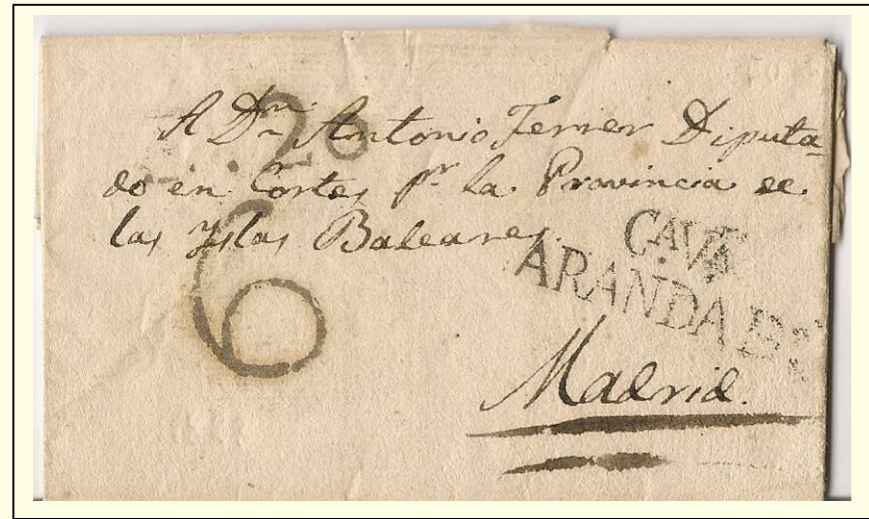 A Dn. Antonio Ferrer Diputa-
do en Cortes pr. la Provincia de
las Yslas Baleares.
6
CAVA
ARANDA
Madrid.